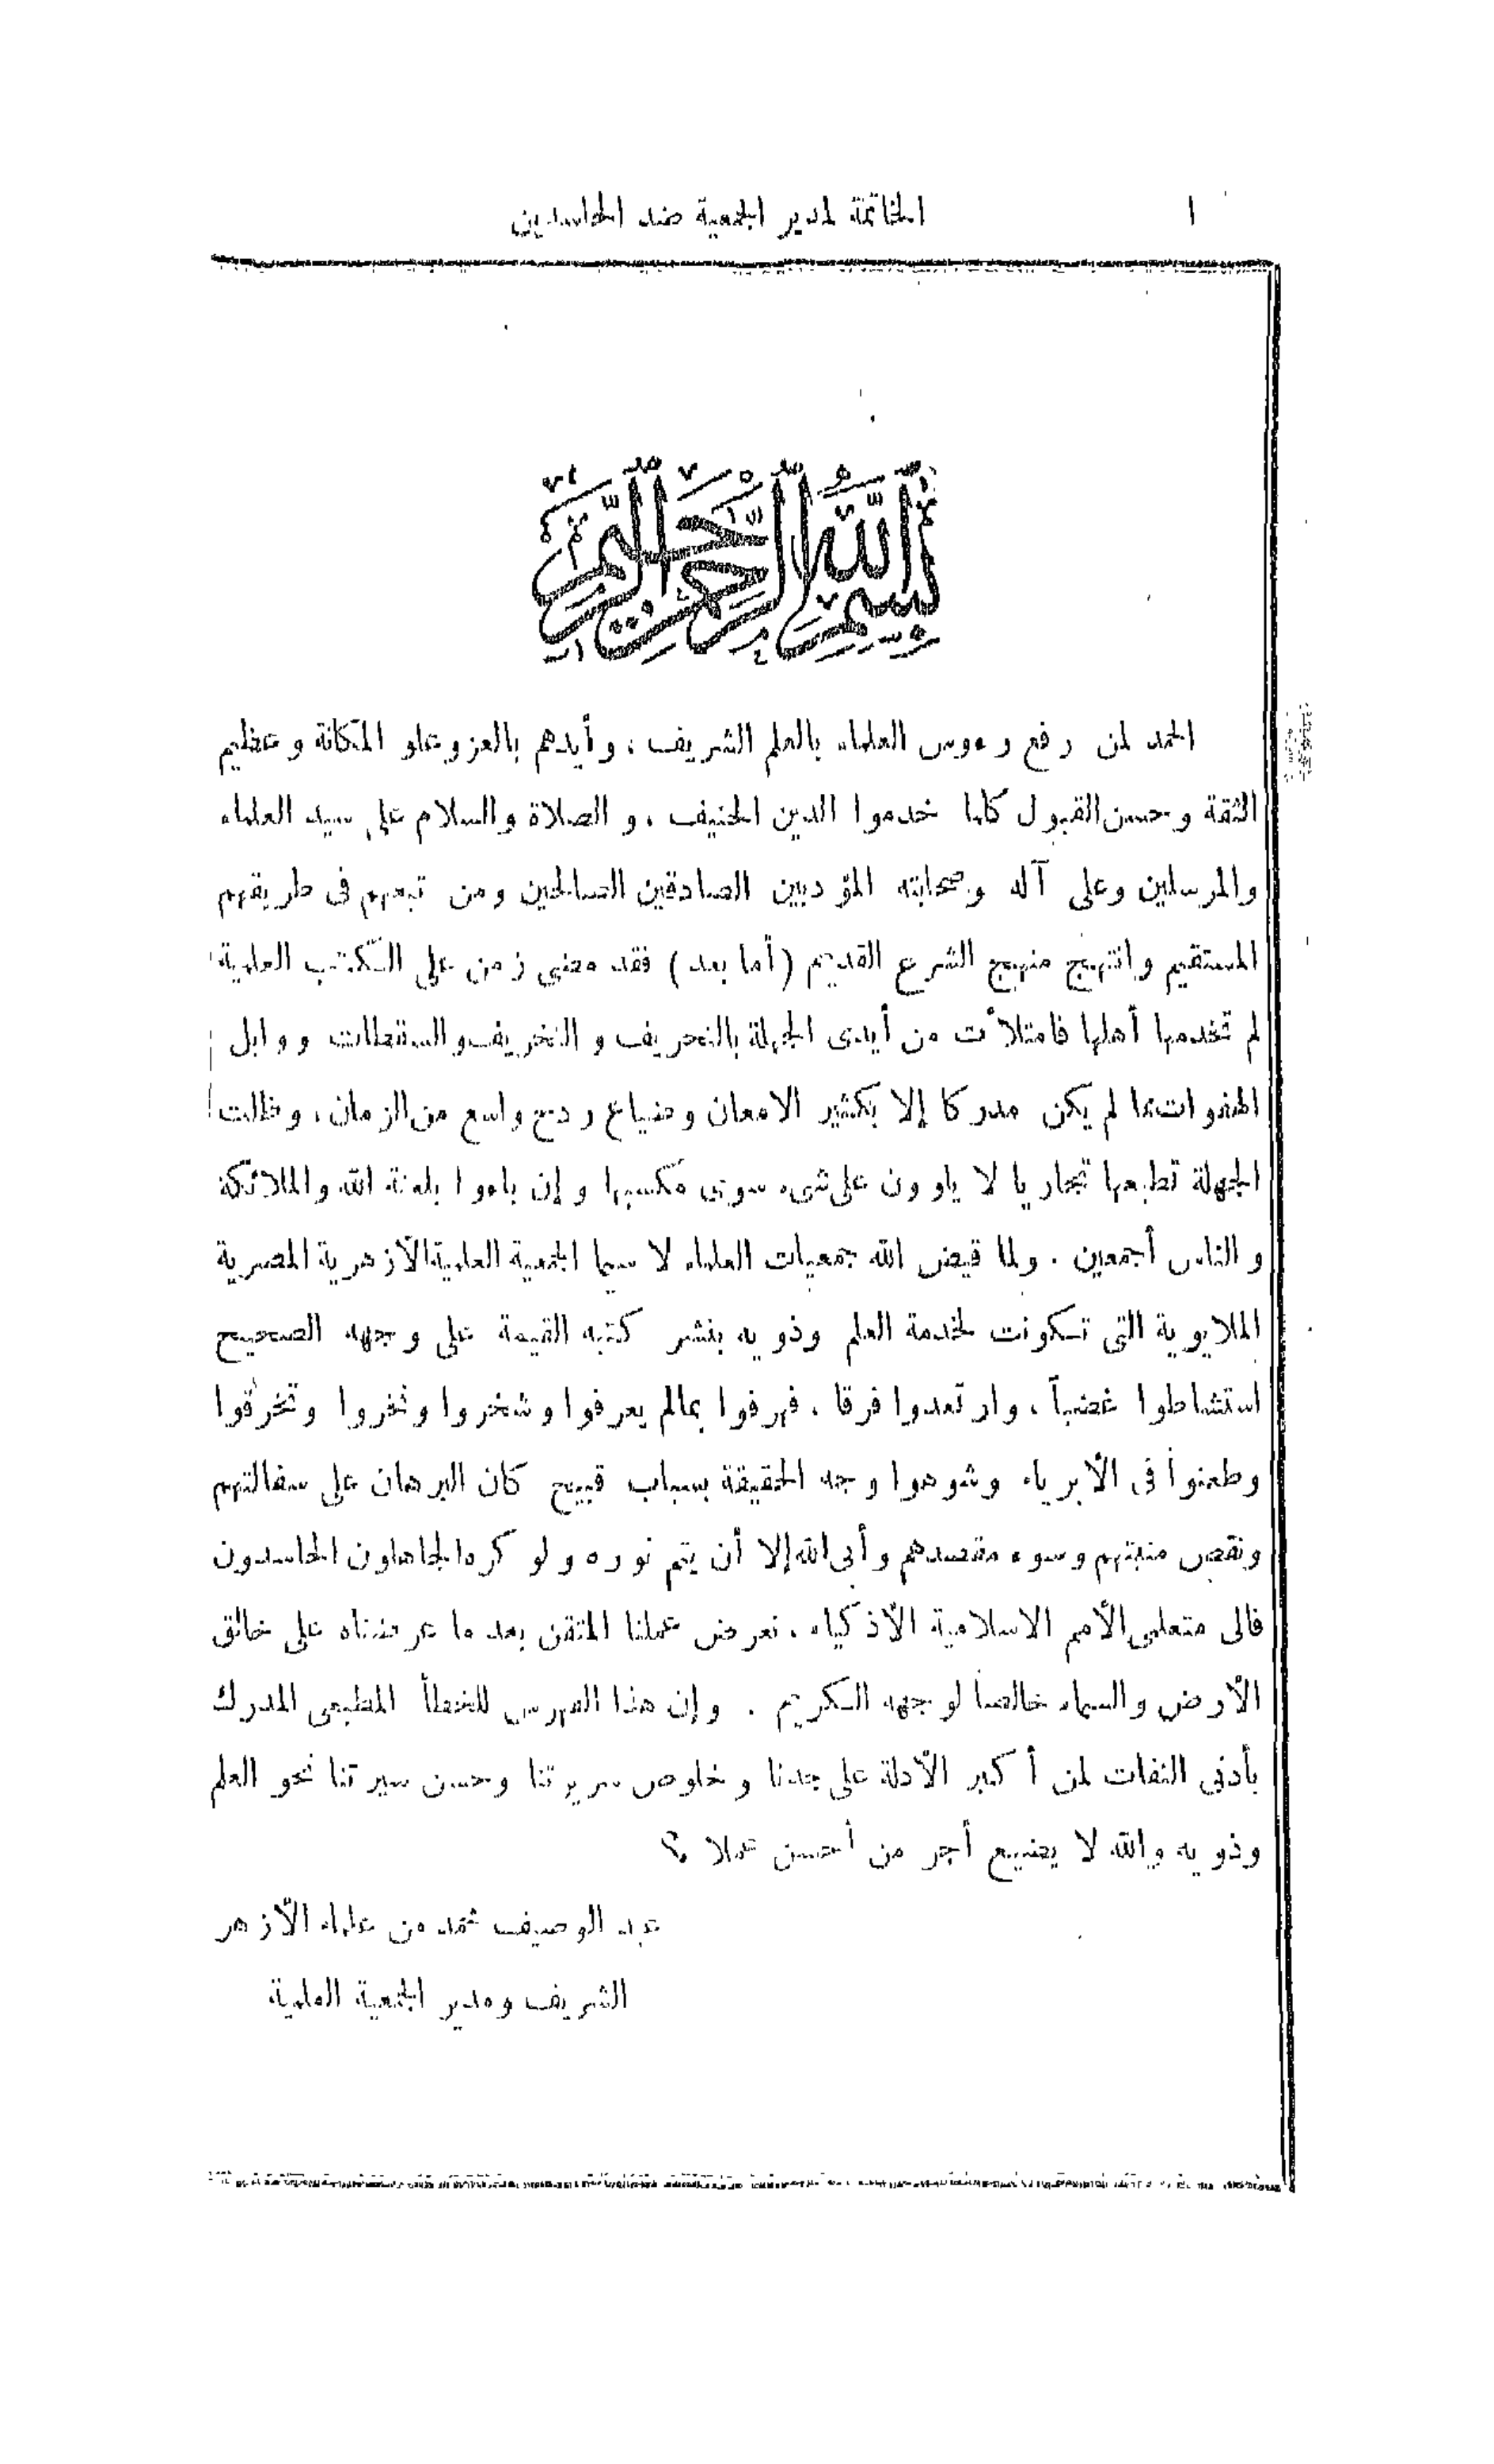 ١ الخاتمة لمدير الجمعية ضد الحاسدين
بسم الله الرحمن الرحيم
الحمد لمن رفع رءوس العلماء بالعلم الشريف ، وأيدهم بالعز وعلو المكانة وعظيم
الثقة وحسن القبول كلما خدموا الدين الحنيف ، والصلاة والسلام على سيد العلماء
والمرسلين وعلى آله وصحابته المؤدبين الصادقين الصالحين ومن تبعهم فى طريقهم
المستقيم وانتهج منهج الشرع القديم (أما بعد) فقد مضى زمن على الكتب العلمية
لم تخدمها أهلها فامتلأت من أيدى الجهلة بالتحريف والتخريف والسقطات ووابل
الهفوات مما لم يكن مدركا إلا بكثير الامعان وضياع ردح واسع من الزمان ، وظلت
الجهلة تطبعها تجاريا لا يلوون على شىء سوى مكسبها وإن باءوا بلعنة الله والملائكة
والناس أجمعين . ولما قيض الله جمعيات العلماء لا سيما الجمعية العلمية الأزهرية المصرية
الملايوية التى تكونت لخدمة العلم وذويه بنشر كتبه القيمة على وجهه الصحيح
استشاطوا غضبا ، وارتعدوا فرقا ، فهرفوا بمالم يعرفوا وشخروا ونخروا وتخرقوا
وطعنوا فى الأبرياء وشوهوا وجه الحقيقة بسباب قبيح كان البرهان على سفالتهم
ونقص منبتهم وسوء مقصدهم وأبى الله إلا أن يتم نوره ولو كره الجاهلون الحاسدون
فالى متعلمى الأمم الاسلامية الأذكياء ، نعرض عملنا المتقن بعد ما عرضناه على خالق
الأرض والسماء خالصا لوجهه الكريم . وإن هذا الفهرس للخطأ المطبعى المدرك
بأدنى التفات لمن أكبر الأدلة على جدنا وخلوص سريرتنا وحسن سيرتنا نحو العلم
وذويه والله لا يضيع أجر من أحسن عملا ؟
عبد الوصيف محمد من علماء الأزهر
الشريف ومدير الجمعية العلمية